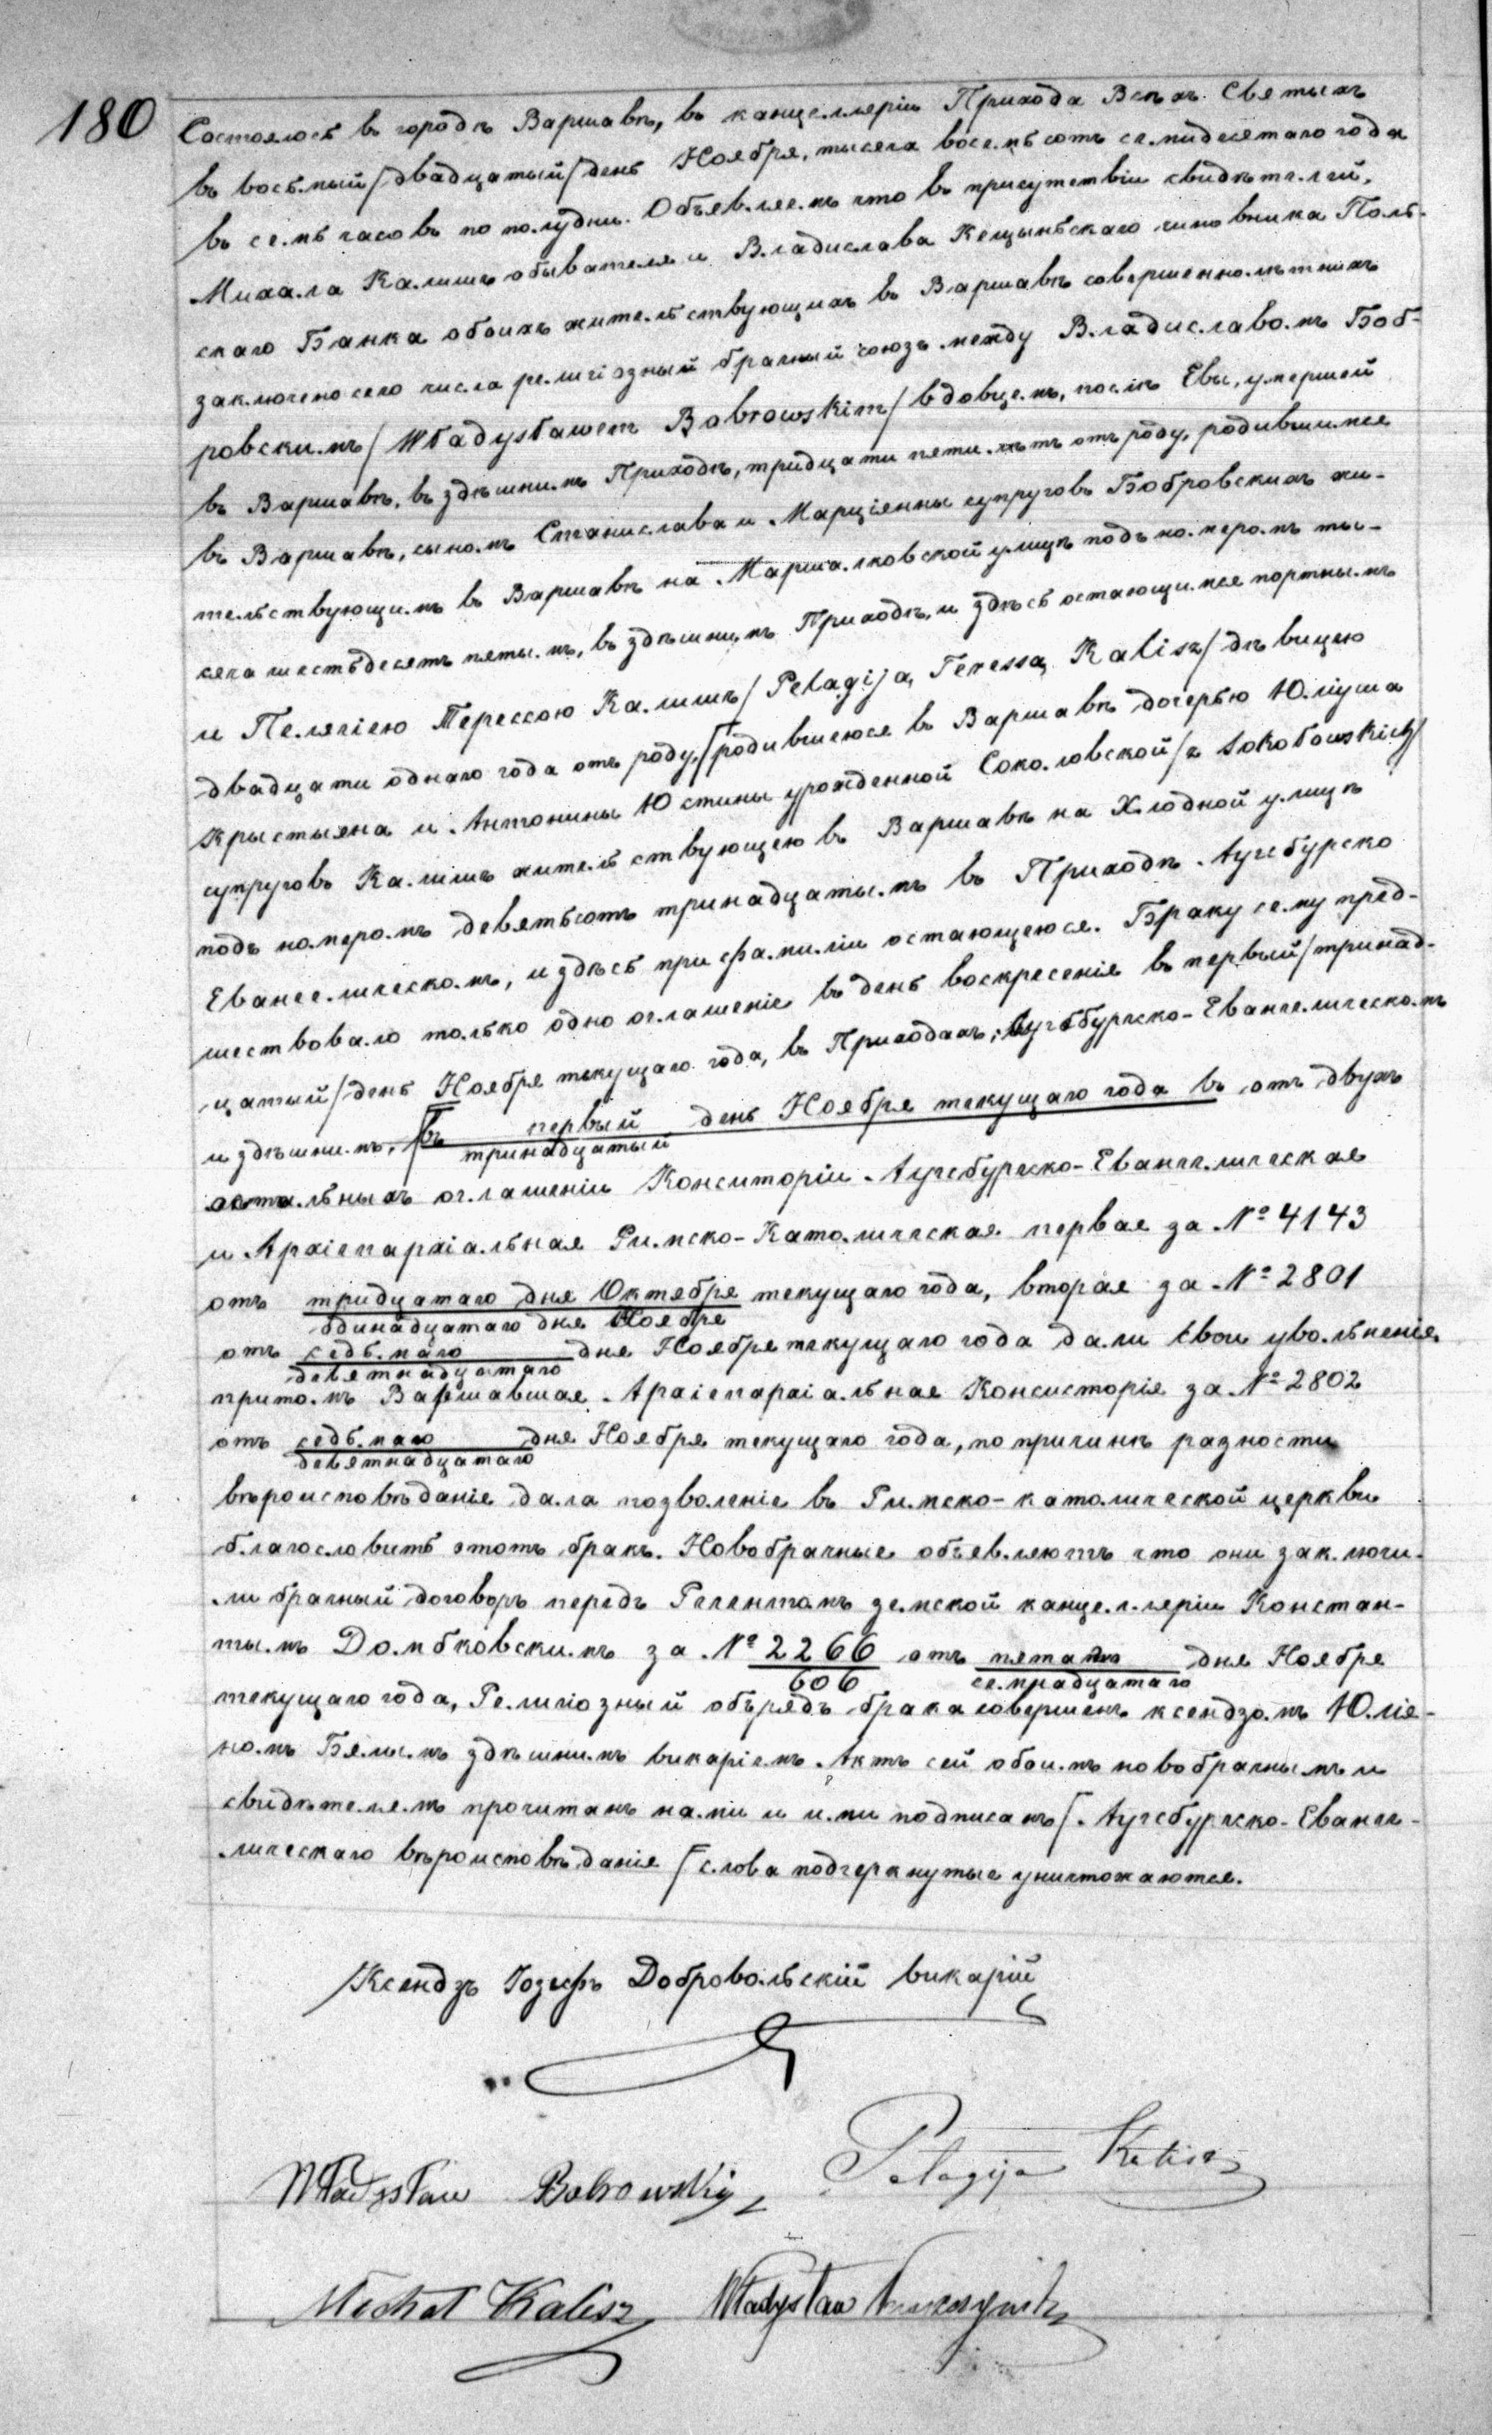 180
Состоялось въ городѣ Варшавѣ, въ канцеляріи Прихода Всѣхъ Святыхъ
въ восьмый /двадцатый/ день Ноября, тысяча восемьсотъ семидесятаго года
въ семь часовъ по полудни. Объявляемъ что въ присутствіи свидѣтелей,
Михала Калишъ обывателя и Владислава Кещыньскаго чиновника Поль-
скаго Банка обоихъ жительствующихъ въ Варшавѣ совершеннолѣтнихъ
заключено сего числа религіозный брачный союзъ между Владиславомъ Боб-
ровскимъ /Władysławem Bobrowskim/ вдовцемъ, послѣ Евы, умершей
въ Варшавѣ, въ здѣшнимъ Приходѣ, тридцати пяти лѣтъ отъ роду, родившимся
въ Варшавѣ, сыномъ Станислава и Марціянны супруговъ Бобровскихъ жи-
тельствующимъ въ Варшавѣ на Маршалковской улицѣ подъ номеромъ ты-
сяча шестьдесятъ пятымъ, въ здѣшнимъ Приходѣ, и здѣсь остающимся портнымъ
и Пелягіею Терессою Калишъ /Pelagija, Teressa Kalisz/ дѣвицею
двадцати однаго года отъ роду, родившеюся въ Варшавѣ дочерью Юліуша
Крыстыяна и Антонины Юстины урожденной Соколовской /z Sokołowskich/
супруговъ Калишъ жительствующею въ Варшавѣ на Хлодной улицѣ
подъ номеромъ девятьсотъ тринадцатымъ въ Приходѣ Аугсбурско
Евангелическомъ, и здѣсь при фамиліи остающеюся. Браку сему пред-
шествовало только одно оглашеніе въ день воскресенія въ первый /тринад-
цатый/ день Ноября текущаго года, въ Приходахъ: Аугсбургско-Евангелическомъ
и здѣшнимъ, въ первый день Ноября текущаго года въ отъ двухъ
тринадцатый
остальныхъ оглашеніи Конситоріи Аугсбургско-Евангелическая
и Архіепархіальная Римско-Католическая первая за № 4143
отъ тридцатаго дня Октября текущаго года, вторая за № 2801
одинадцатаго дня Ноября
отъ седьмаго дня Ноября текущаго года дали свои увольненія,
девятнадцатаго
притомъ Варшавшая Архіепархіальная Консисторія за № 2802
отъ седьмаго дня Ноября текущаго года, по причинѣ разности
девятнадцатаго
вѣроисповѣданіе дала позволеніе въ Римско-католической церкви
благословить этотъ бракъ. Новобрачные объявляютъ что они заключи-
ли брачный договоръ передъ Регентомъ земской канцелляріи Констан-
тымъ Домбковскимъ за № 2266 отъ пятаго дня Ноября
606 семнадцатаго
текущаго года, Религіозный обърядъ брака совершенъ ксендзомъ Юлія-
номъ Бялымъ здѣшнимъ викаріемъ. Актъ сей обоимъ новобрачнымъ и
свидѣтелямъ прочитанъ нами и ими подписанъ /. Аугсбургско-Еванге-
лическаго вѣроисповѣданія / слова подчеркнутые уничтожаются.
Ксендзъ Іозефъ Добровольскій викарій
Władysław Bobrowski Pelagija Kalisz
Michał Kalisz Władysław